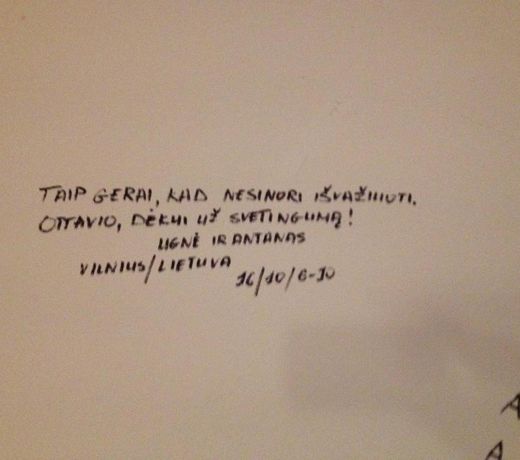 TAIP GERAI, KAD NESINORI IŠVAŽIUOTI.
OTTAVIO, DĖKUI UŽ SVETINGUMĄ!
UGNĖ IR ANTANAS
VILNIUS/LIETUVA
16/10/6-10
A
A